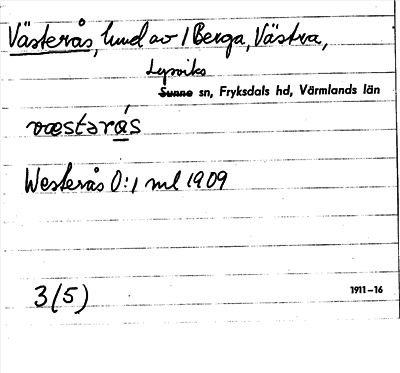 Västerås, hmd av 1 Berga, Västra,
Lysviks
Sunne sn, Fryksdals hd, Värmlands län
væstərås
Westerås 0:1 ml 1909
3(5)
1911–16